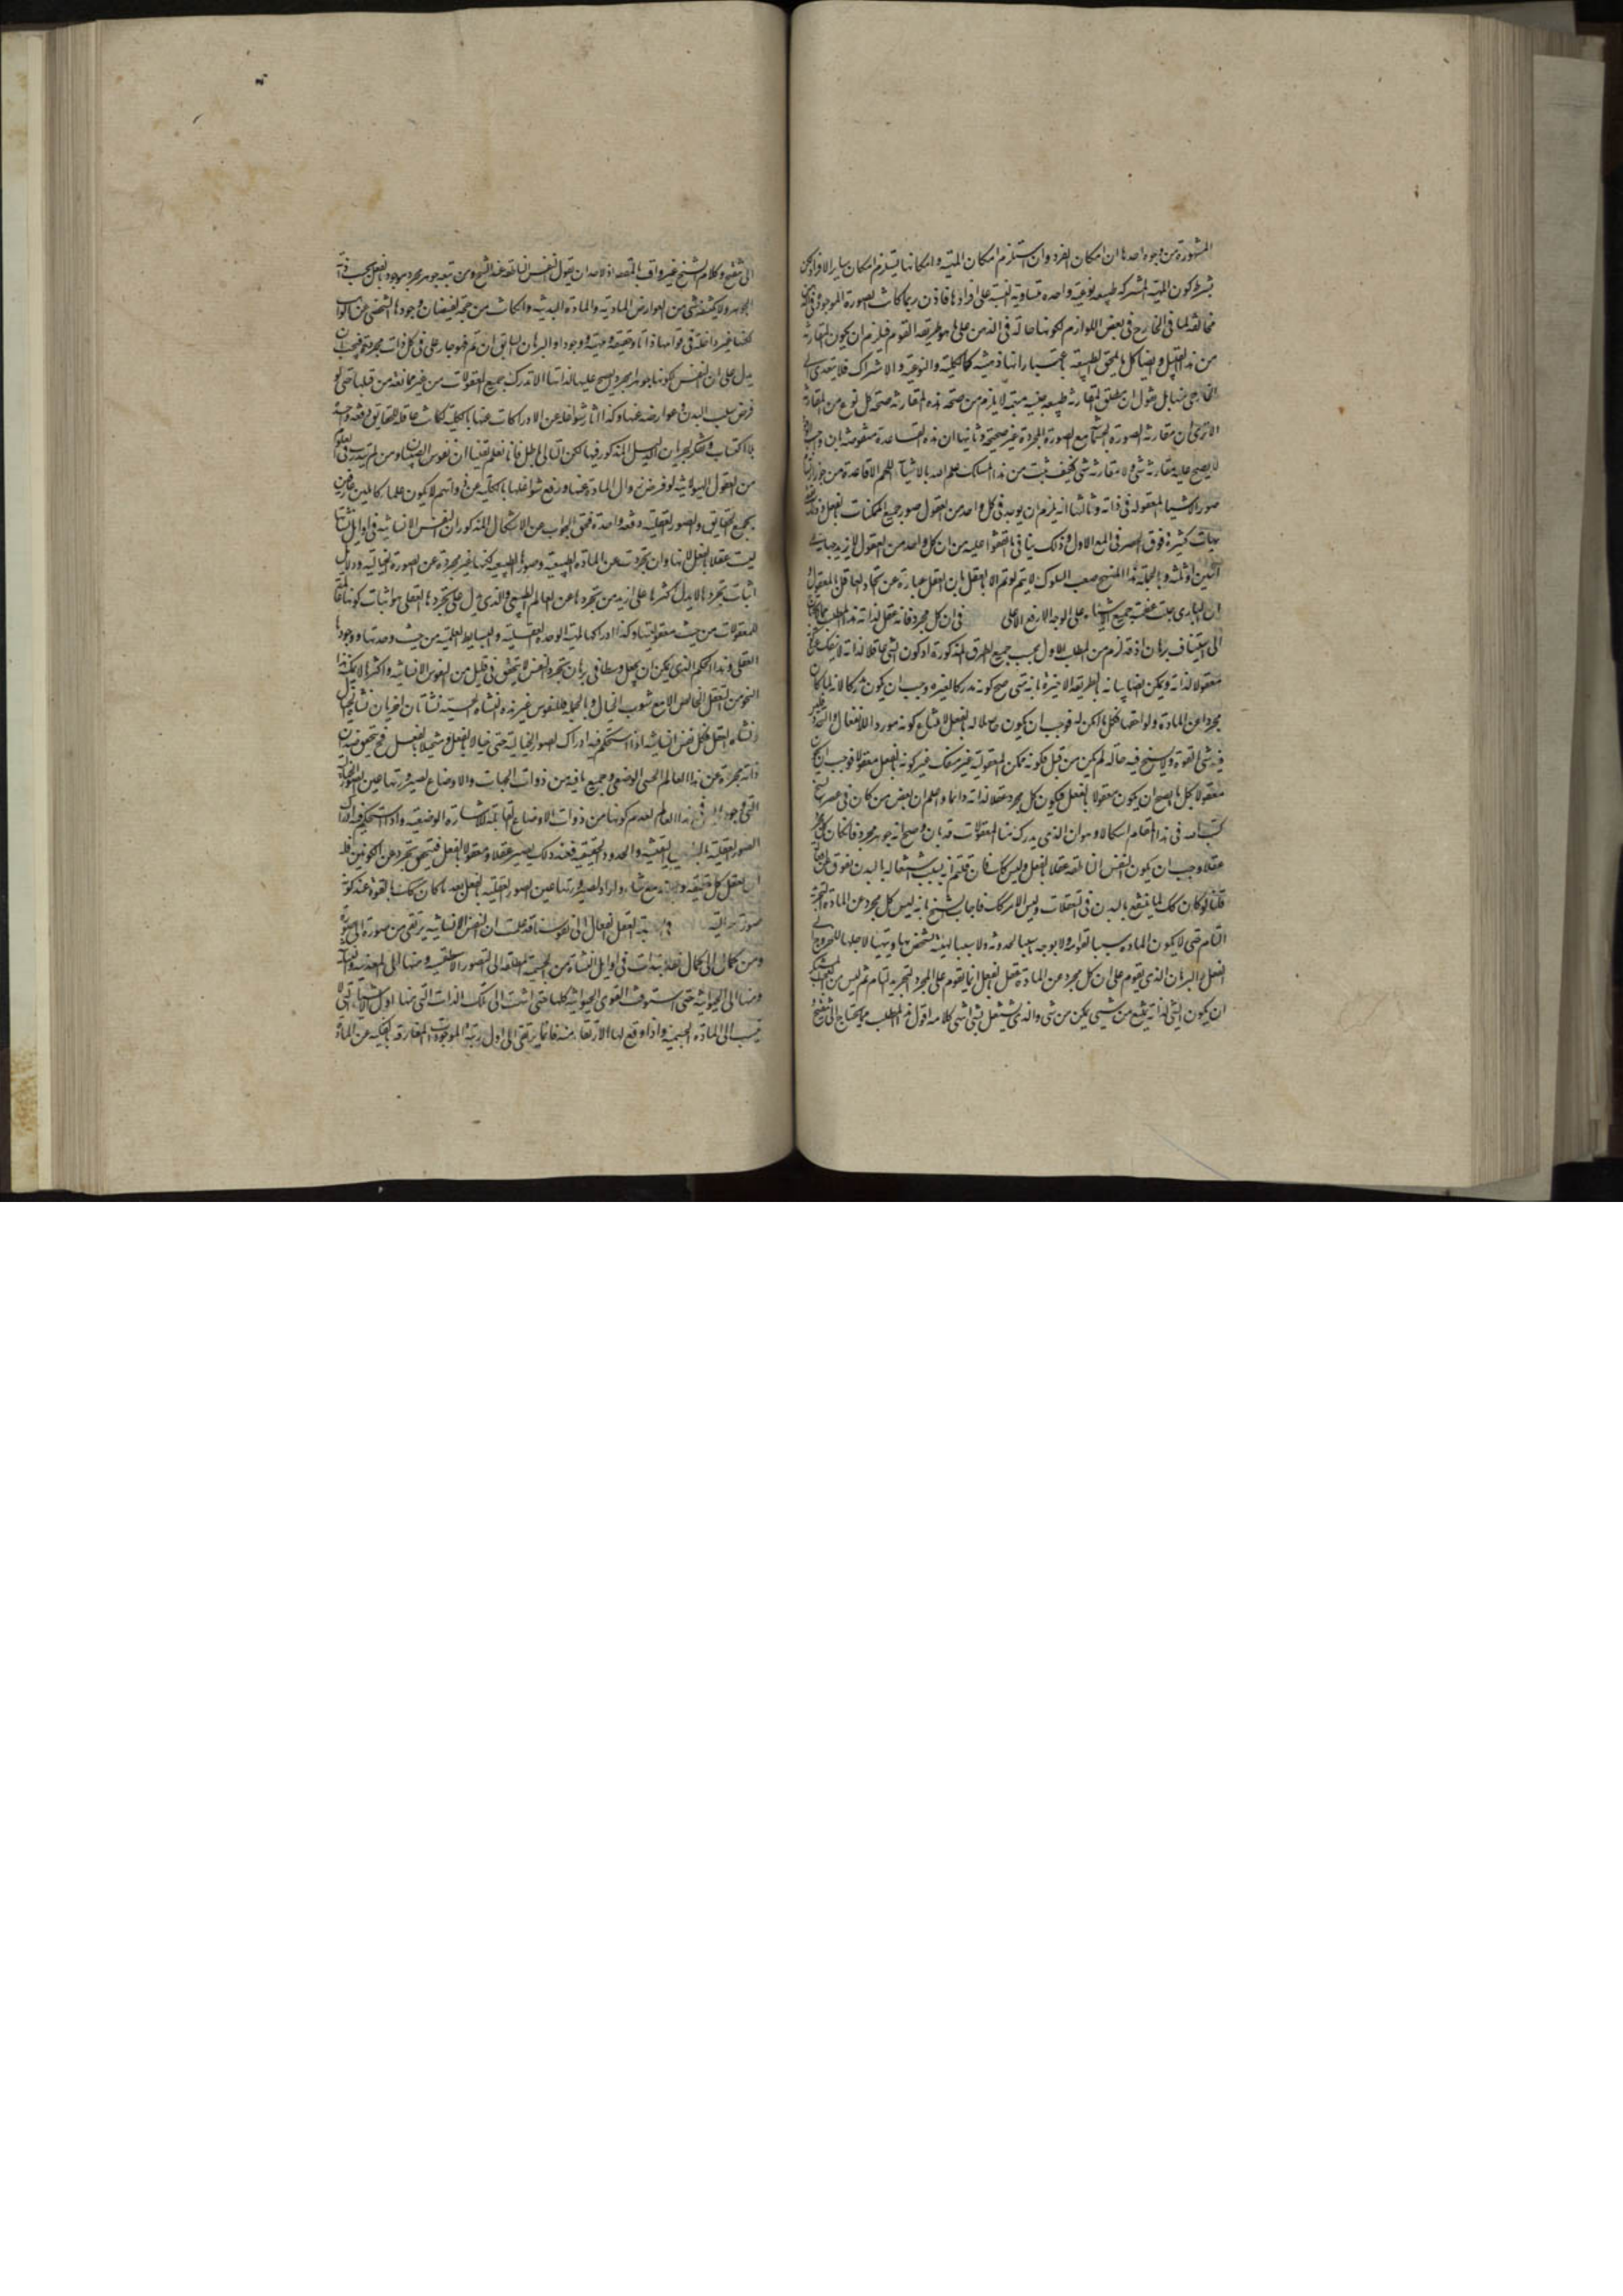 المشهورة من وجوه احدها ان امكان الفرد وان استلزم امكان المهية وامكانها يستلزم امكان ساير الافراد لكن
بشرط كون المهية المشتركة طبيعة نوعية واحدة متساوية النسبة على افرادها فاذن ربما كانت الصورة الموجودة في الذهن
مخالفة لما في الخارج في بعض اللوازم لكونها حالة في الذهن على ما هو طريقة القوم فيلزم ان يكون المقارنة
من هذا القبيل وايضا كل ما يلحق الطبيعة باعتبار انها ذهنية كالكلية والنوعية والاشتراك فلا يتعدى الى
الخارجي منها بل نقول ان مطلق المقارنة طبيعة جنسية مبهمة لا يلزم من صحة هذه المقارنة صحة كل نوع من المقارنة
الا ترى ان مقارنة الصورة الجسمانية مع الصورة المجردة غير صحيحة وثانيها ان هذه القاعدة منقوضة بان واجب الوجود
لا يصح عليه مقارنة شي ولا مقارنة شي فكيف يثبت من هذا المسلك علم الله بالاشياء اللهم الا قاعدة من جوز ارتسام
صور الاشياء المعقولة في ذاته وثالثها انه يلزم ان يوجد في كل واحد من العقول صور جميع الممكنات بالفعل
جهات كثيرة فوق الحصر في المبدع الاول وذلك ينافي ما اتفقوا عليه من ان كل واحد من العقول لا يزيد جهاته على
اثنين او ثلثة وبالجملة هذا المنهج صعب السلوك لا يتم لو تم الا بالعقل بان العقل عبارة عن اتحاد العاقل بالمعقول
ان الباري جلت عظمته جميع الاشياء على الوجه الارفع الاعلى في ان كل مجرد فانه عقل لذاته هذا المطلب
الى استيناف برهان اذ قد لزم من المطلب الاول بحسب جميع الطرق المذكورة اذ كون الشي عاقلا لذاته لا ينفك عن كونه
معقولا لذاته ويمكن ايضا بيانه بالطريقة الاخيرة بانه متى صح كونه مدركا لغيره وجب ان يكون مدركا لانه لما كان
مجردا عن المادة ولواحقها فكل ما امكن له فوجب ان يكون حاصلا له بالفعل لامتناع كونه موردا للانفعال والتجدد
فيه شي بالقوة ولا يسنح فيه حالة لم يكن من قبل فكونه ممكن المعقولية غير منفك غير كونه بالفعل معقولا فوجب
معقولا فكل ما يصح ان يكون معقولا بالفعل فيكون كل مجرد عقلا لذاته دايما واعلم ان بعض من كان في عصر الشيخ
كتب اليه في هذا المقام اشكالا وهو ان الذي يدرك منا المعقولات قد بان وصح انه جوهر مجرد فان كان كل مجرد
عقلا وجب ان يكون النفس الناطقة عقلا بالفعل وليس كك فان قلتم انه بسبب اشتغالها بالبدن تعوق عن
قلنا لو كان كك لما ينتفع بالبدن في التعقلات وليس الامر كك فاجاب الشيخ بانه ليس كل مجرد عن المادة
التام حتى لا يكون المادة سببا لقوامه ولا بوجه سببا لحدوثه ولا سببا لهيئة يتشخص بها ويتهيأ لاجلها للخروج الى
الفعل والبرهان الذي يقوم على ان كل مجرد عن المادة عقل بالفعل انما يقوم على المجرد التجريد التام ثم ليس من العجب
ان يكون الشي الذي به يمنع من شي يمكن من شي والذي يشتغل بشي انتهى كلامه اقول هذا المطلب مما يحتاج الى تنقيح
الى تنقيح وكلام الشيخ غير واف بالمقصد اذ لاحد ان يقول النفس الناطقة عند الشيخ ومن تبعه جوهر مجرد موجود بالفعل بحسب ذاته
الجوهر ولا يكتنفه شي من العوارض المادية والمادة البدنية وان كانت من جهة لفيضان وجودها الشخصي عن الواهب
لكنها غير داخلة في قوامها ذاتا وحقيقة ومهية ووجودا والبرهان السابق ان تم فهو جار على في كل ذات مجردة فيجب ان
يدل على ان النفس لكونها جوهرا مجردا يصح عليها لذاتها الادراك بجميع المعقولات من غير ممانعة من قبلها حتى لو
فرض سلب البدن وعوارضه عنها وكذا اثار شواغله عن الادراكات عنها بالكلية لكانت عاقلة للحقايق دفعة واحدة
بلا اكتساب وفكر لجريان الدليل المذكور فيها لكن التالي باطل فانا نعلم يقينا ان نفوس الصبيان ومن لم يتدرب في العلوم
من العقول الهيولانية لو فرض زوال المادة عنها ورفع شواغلها بالكلية عن ذواتهم لا يكون علماء كاملين عارفين
بجميع الحقايق والصور العقلية دفعة واحدة فحق الجواب عن الاشكال المذكور ان النفس الانسانية في اوايل نشأتها
ليست عقلا بالفعل لانها وان تجردت عن المادة الطبيعية وصورها الطبيعية لكنها غير مجردة عن الصورة الخيالية ودلايل
اثبات تجردها لا يدل اكثرها على ازيد من تجردها عن العالم الطبيعي والذي يدل على تجردها العقلي هو اثبات كونها
للمعقولات من حيث معقوليتها وكذا ادراكها لمهية الوحدة العقلية والبسايط العلمية من حيث وحدتها ووجودها
العقلي وهذا الحكم الذي يمكن ان يجعل وسطا في برهان تجرد النفس لا يتحقق في قليل من النفوس الانسانية واكثرها لا يمكنها هذا
النحو من التعقل الخالص الا مع شوب الخيال وبالجملة فللنفوس غير هذه النشأة الحسية نشأتان اخريان نشأة الخيال
ونشأة العقل فكل نفس انسانية اذا استحكم فيها ادراك الصور الخيالية حتى خيالا بالفعل ومتخيلا بالفعل فح يتحقق فيه ان
ذاته مجردة عن هذا العالم الحسي الوضعي وجميع ما فيه من ذوات الجهات والاوضاع لصيرورتها عين الصور
التي وجودها في هذا العالم لعدم كونها من ذوات الاوضاع القابلة للاشارة الوضعية واذا استحكم فيه ادراك
الصور العقلية اليقينية والحدود الحقيقية فعند ذلك يصير عقلا ومعقولا بالفعل فيتحقق تجرده عن الكونين فله
ان يعقل كل حقيقة مع شاء واراد لصيرورتها عين الصور العقلية بالفعل بعد ما كان كك بالقوة عند كونه
صورة خيالية في نسبة العقل الفعال الى نفوسنا قد علمت ان النفس الانسانية يترقى من صورة الى صورة
ومن كمال الى كمال فقد بدات في اوايل النشأة من الجسمية المطلقة الى الصور الاسطقسية ومنها الى المعدنية والنباتية
ومنها الى الحيوانية حتى استوفت القوى الحيوانية كلها حتى انتهت الى تلك الذات التي منها اول الاشياء التي لا
ينسب الى المادة الجسمية واذا وقع لها الارتقاء منه فانما يرتقي الى اول رتبة الموجودات المفارقة بالكلية عن المادة